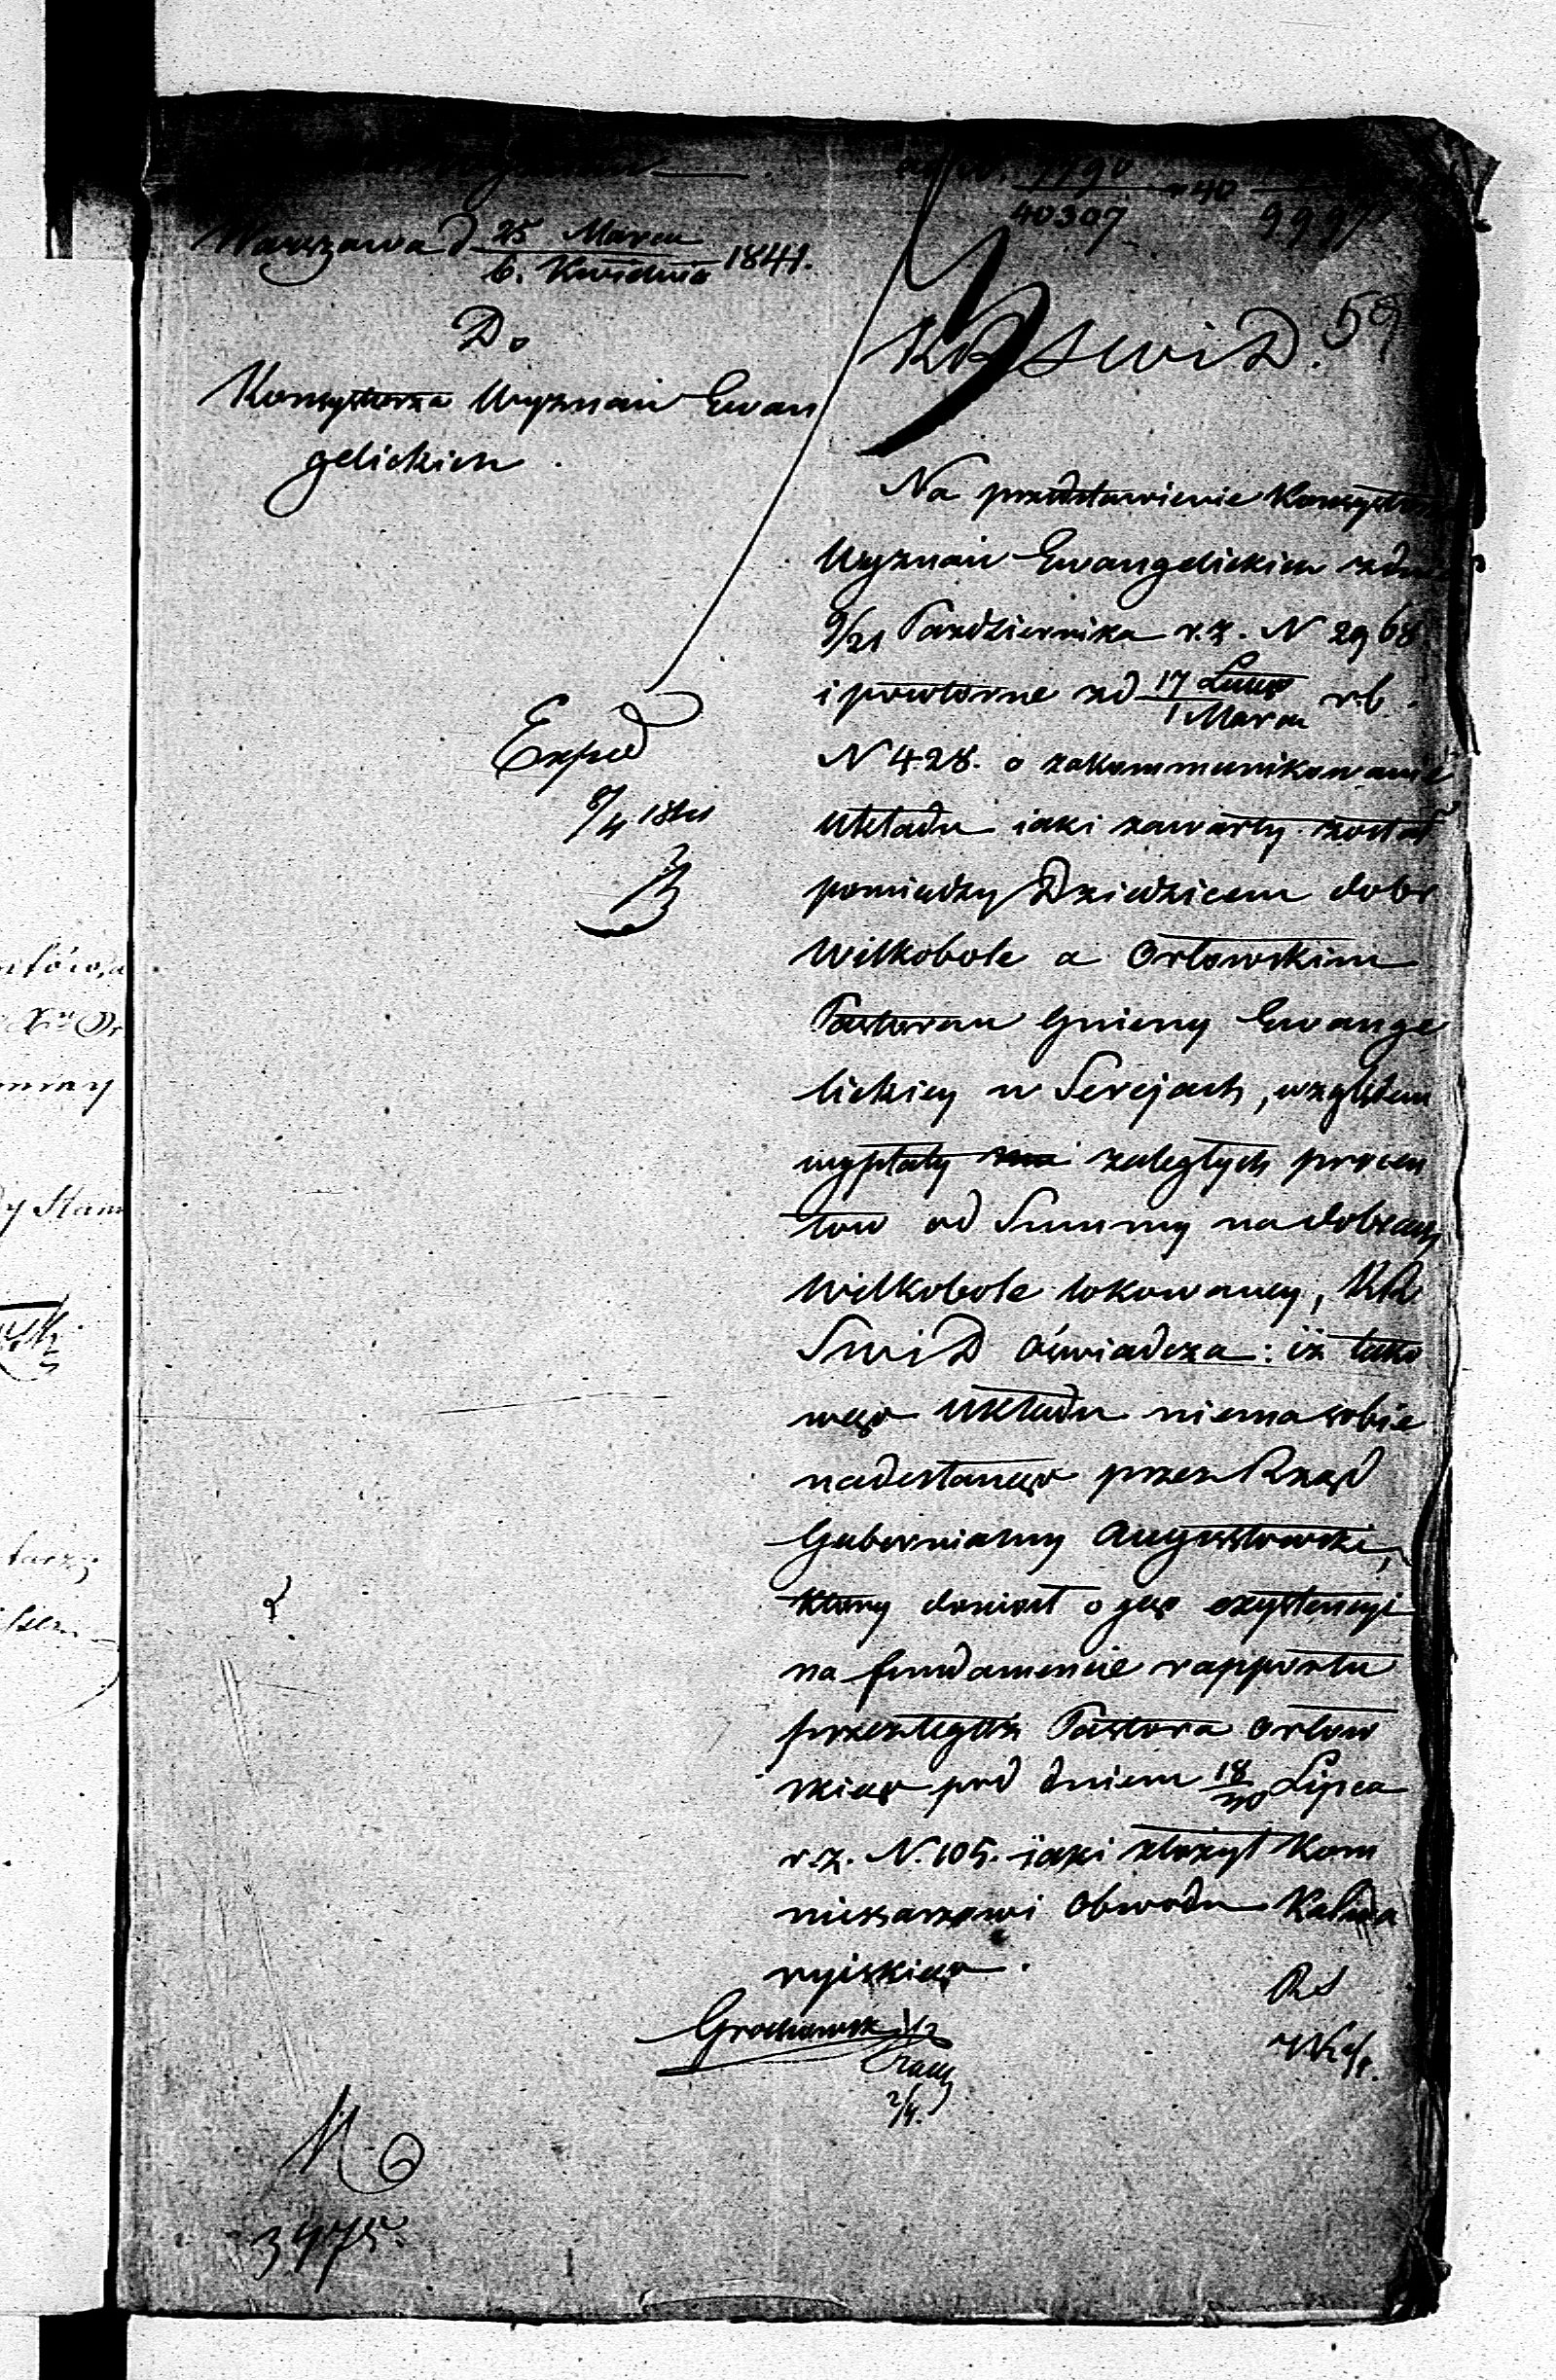 ad N. 7790/40307 — 40 9997
Warszawa d 25 Marca/6. Kwietnia 1841.
59
Do
KRSWiD.
Konsystorza Wyznań Ewan
gelickich.
Na przedstawienie Konsystorza
Wyznań Ewangelickich z dnia
9/21 Października r.z. N 2968.
i powtorne z d 17 Lutego/1 Marca r.b.
N 428. o zakommunikowanie
układu iaki zawarty został
pomiędzy Dziedzicem dobr
Wilkobole a Orłowskim
Pastorem Gminy Ewange
lickiey w Serejach, względem
wypłaty zaległych procen
tow od Summy na dobrach
Wilkobole lokowaney, KR
SWiD oświadcza: iż tako
wego układu niema sobie
nadesłanego przez Rząd
Gubernialny Augustowski,
ktory doniosł o jego exystencyi
na fundamencie rapportu
przez tegoż Pastora Orłow
skiego pod dniem 18/30 Lipca
r.z. N. 105. iaki złożył Kom
missarzowi Obwodu Kalwa
ryiskiego.
Exped
8/4 1841
B
RS
Grochowsk
2/4.
3475.